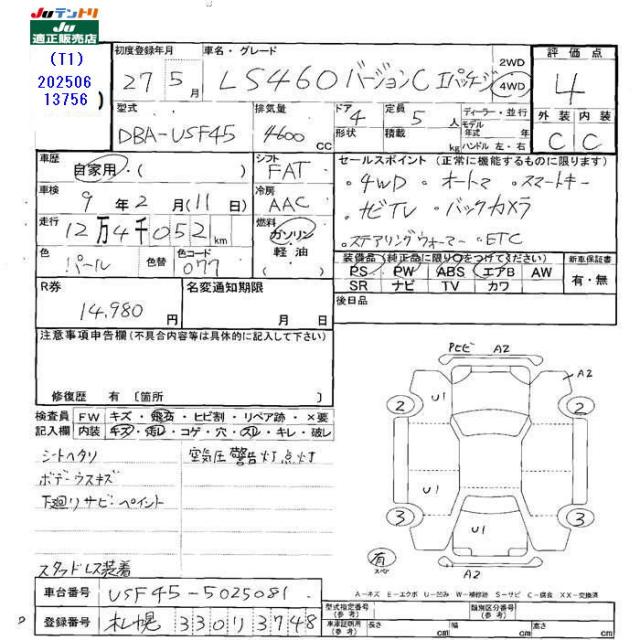 JUテントリ
JU
適正販売店
(T1)
202506
13756 )
初度登録年月
27年 5月
車名・グレード
LS460 バージョンC Iパッケージ
2WD
4WD
評価点
4
外装 内装
C C
型式
DBA-USF45
排気量
4600 cc
ドア 4
形状
定員 5 人
積載 kg
ディーラー・並行
モデル
年式 年
ハンドル 左・右
車歴
自家用・( )
シフト
FAT
車検
9年 2月 (11日)
冷房
AAC
走行
12万4千052 km
燃料
ガソリン・
軽油
色
パール
色替
色コード
077
セールスポイント (正常に機能するものに限ります)
・4WD ・オートマ ・スマートキー
・ナビTV ・バックカメラ
・ステアリングウォーマー ・ETC
装備品 (純正品に限り○をつけてください)
PS PW ABS エアB AW
SR ナビ TV カワ
新車保証書
有・無
R券
14,980 円
名変通知期限
月 日
後日品
注意事項申告欄(不具合内容等は具体的に記入して下さい)
修復歴 有 〔箇所 〕
検査員 FW キズ・飛石・ヒビ割・リペア跡・×要
記入欄 内装 キズ・汚レ・コゲ・穴・スレ・キレ・破レ
シートヘタリ
空気圧警告灯点灯
ボデーウスキズ
下廻リサビ・ペイント
スタッドレス装着
Pヒビ A2
A2
U1
2 2
U1
3 3
U1
A2
有
A-キズ E-エクボ U-凹み W-補修跡 S-サビ C-腐食 XX-交換済
車台番号 USF45-5025081
登録番号 札幌 330 ク 3748
型式指定番号
(参考)
類別区分番号
(参考)
車庫証明用
(参考)
長さ cm 幅 cm 高さ cm